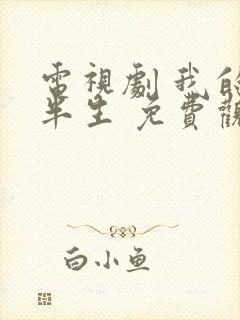 電視劇我的
半生 免費觀
白小鱼